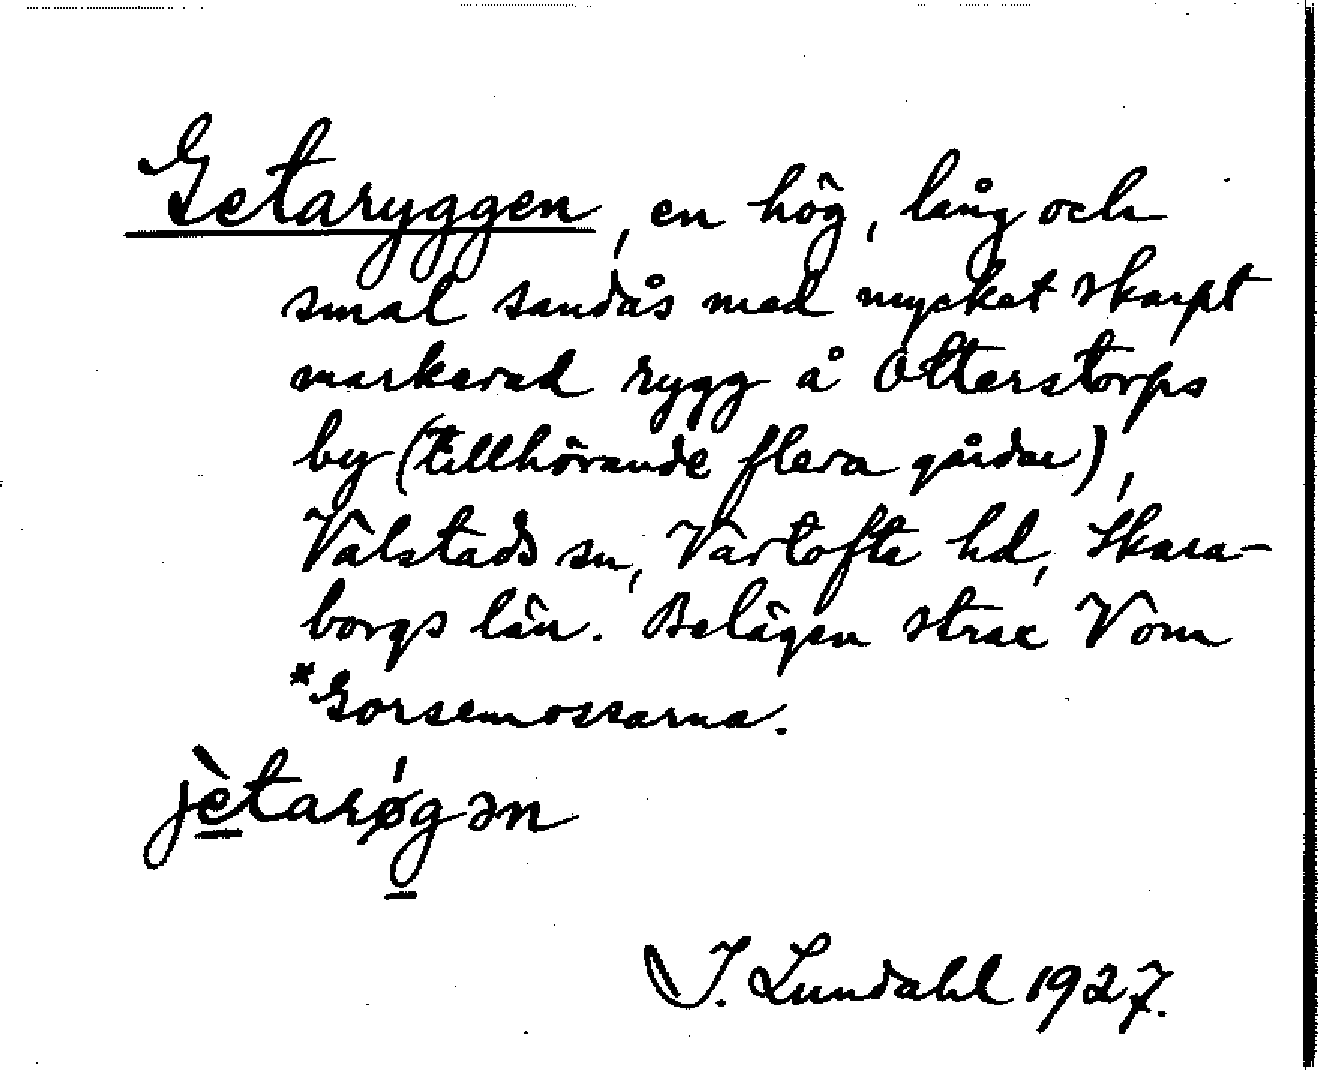 Getaryggen, en hög, lång och
smal sandås med mycket skarpt
markerad rygg å Otterstorps
by (tillhörande flera gårdar),
Valstads sn, Vartofta hd, Skara-
borgs län. Belägen strax V om
*Gorsemossarna.
jètarǿgən
I. Lundahl 1927.